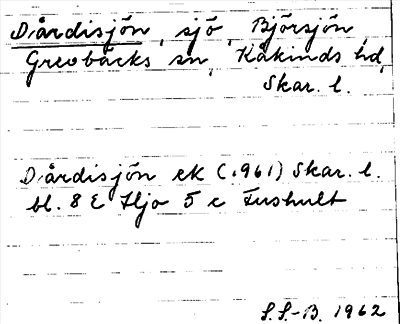 Dårdisjön, sjö, Björsjön
Grevbäcks sn, Kåkinds hd,
Skar. l.
Dårdisjön ek (1961) Skar. l.
bl. 8 E Hjo 5 c Fushult
S.S.-B. 1962